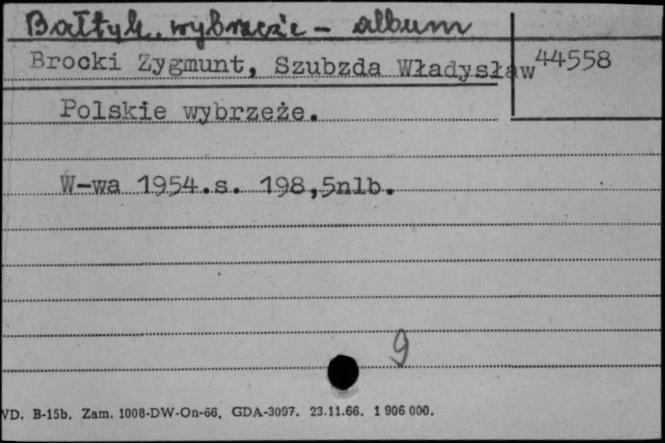 Bałtyk. wybrzeże - album
Brocki Zygmunt, Szubzda Władysław
44558
Polskie wybrzeże.
W-wa 1954.s. 198,5nlb.
9
VD. B-15b. Zam. 1008-DW-On-66. GDA-3097. 23.11.66. 1 906 000.